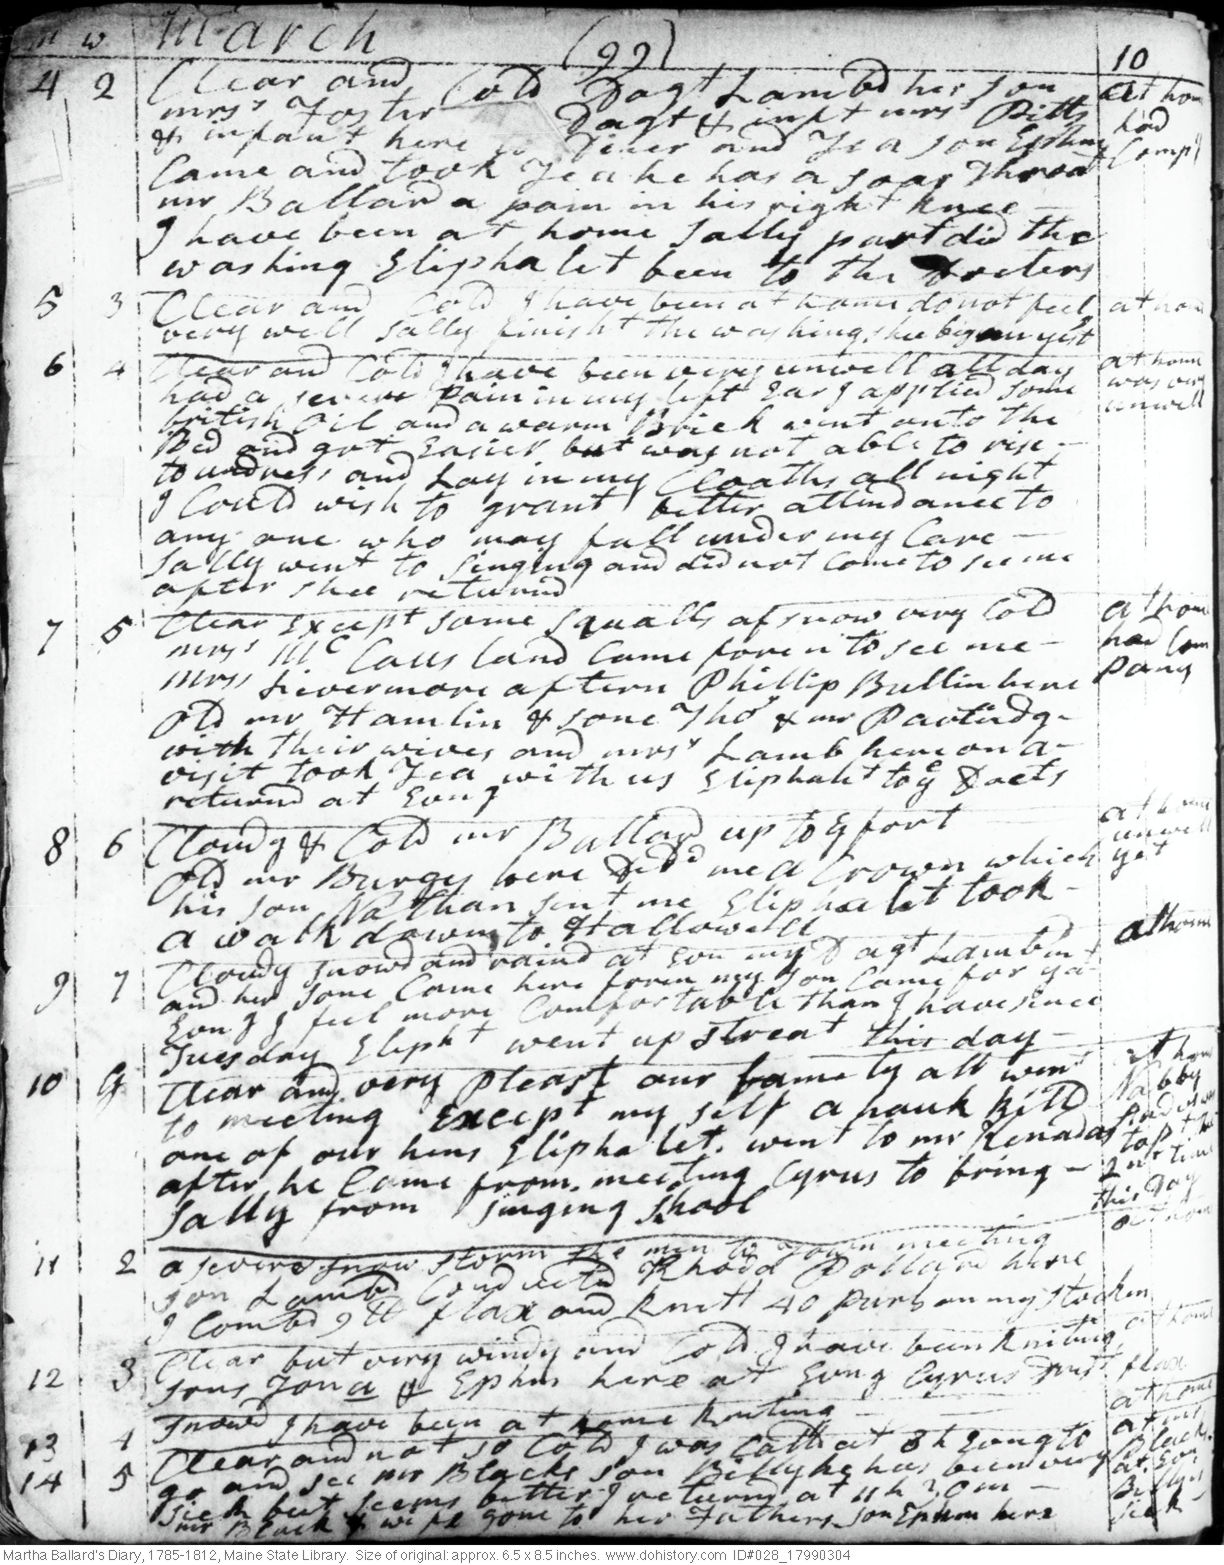 m w March (99) 10
4 2 Clear and Cold Dagt Lambd her son at home
mrss Foster Dagt & inft mrs Pitts had
& infant here to Diner and Tea son Ephm Compy
Came and took Tea he has a soar Throat
mr Ballard a pain in his right knee —
I have been at home Sally part did the
washing Eliphalet been to the Docters
5 3 Clear and Cold I have been at home do not feel at home
very well Sally finisht the washing shee began yest
6 4 Clear and Cold I have been very unwell all day at home
had a severe pain in my left Ear I applied some was very
british Oil and a warm Brick went onto the unwell
Bed and got Easier but was not able to rise —
to undress and Lay in my Cloaths all night
I Could wish to grant better attendance to
any one who may fall under my Care —
Sally went to Singing and did not Come to see me
after shee returnd
7 5 Clear Except some squalls of snow very Cold at home
mrss Mc Causland Came foren to see me — had Com
mrss Livermore aftern Phillip Bullin here pany
Old mr Hamlin & sone Tho & mr Partridg
with their wives and mrss Lamb here on a
visit took Tea with us Eliphalt to ye Docts
returnd at Evng
8 6 Cloudy & Cold mr Ballard up to ye fort at home
Old mr Burges here Deld me a Crown which unwell
his son Nathan sent me Eliphalet took — yet
a walk down to Hallowell
9 7 Cloudy snowd and raind at Evn my Dagt Lambd at home
and her sone Came here foren my son Came for
Evng I feel more Comfortable than I have since
Tuesday Elipht went up streat this day —
10 G Clear and very Pleast our famely all went at home
to meeting Except my self a hauk kild Nabby
one of our hens Eliphalet went to mr Kenadas
after he Came from meeting Cyrus to bring — 2nd time
Sally from singing skool this Day
11 2 a severe snow storm the men to Town meeting at home
son Lambd Conducted Rhoda Pollard here
I Combd 9 lb flax and knitt 40 purls on my stocken
12 3 Clear but very windy and Cold I have been kniting at home
sons Jona & Ephm here at Evng Cyrus flax
13 4 snowd I have been at home kniting at home
14 5 Clear and not so Cold I was Calld at 8 h Evng to at mr
go and see mr Blacks son Billy he has been very Blacks
sick but seems better I returnd at 11 h 30 m — at Evn
mr Black & wife gone to her Fathers son Ephm here Billy is sick
Martha Ballard's Diary, 1785-1812, Maine State Library. Size of original: approx. 6.5 x 8.5 inches. www.dohistory.com ID#028_17990304